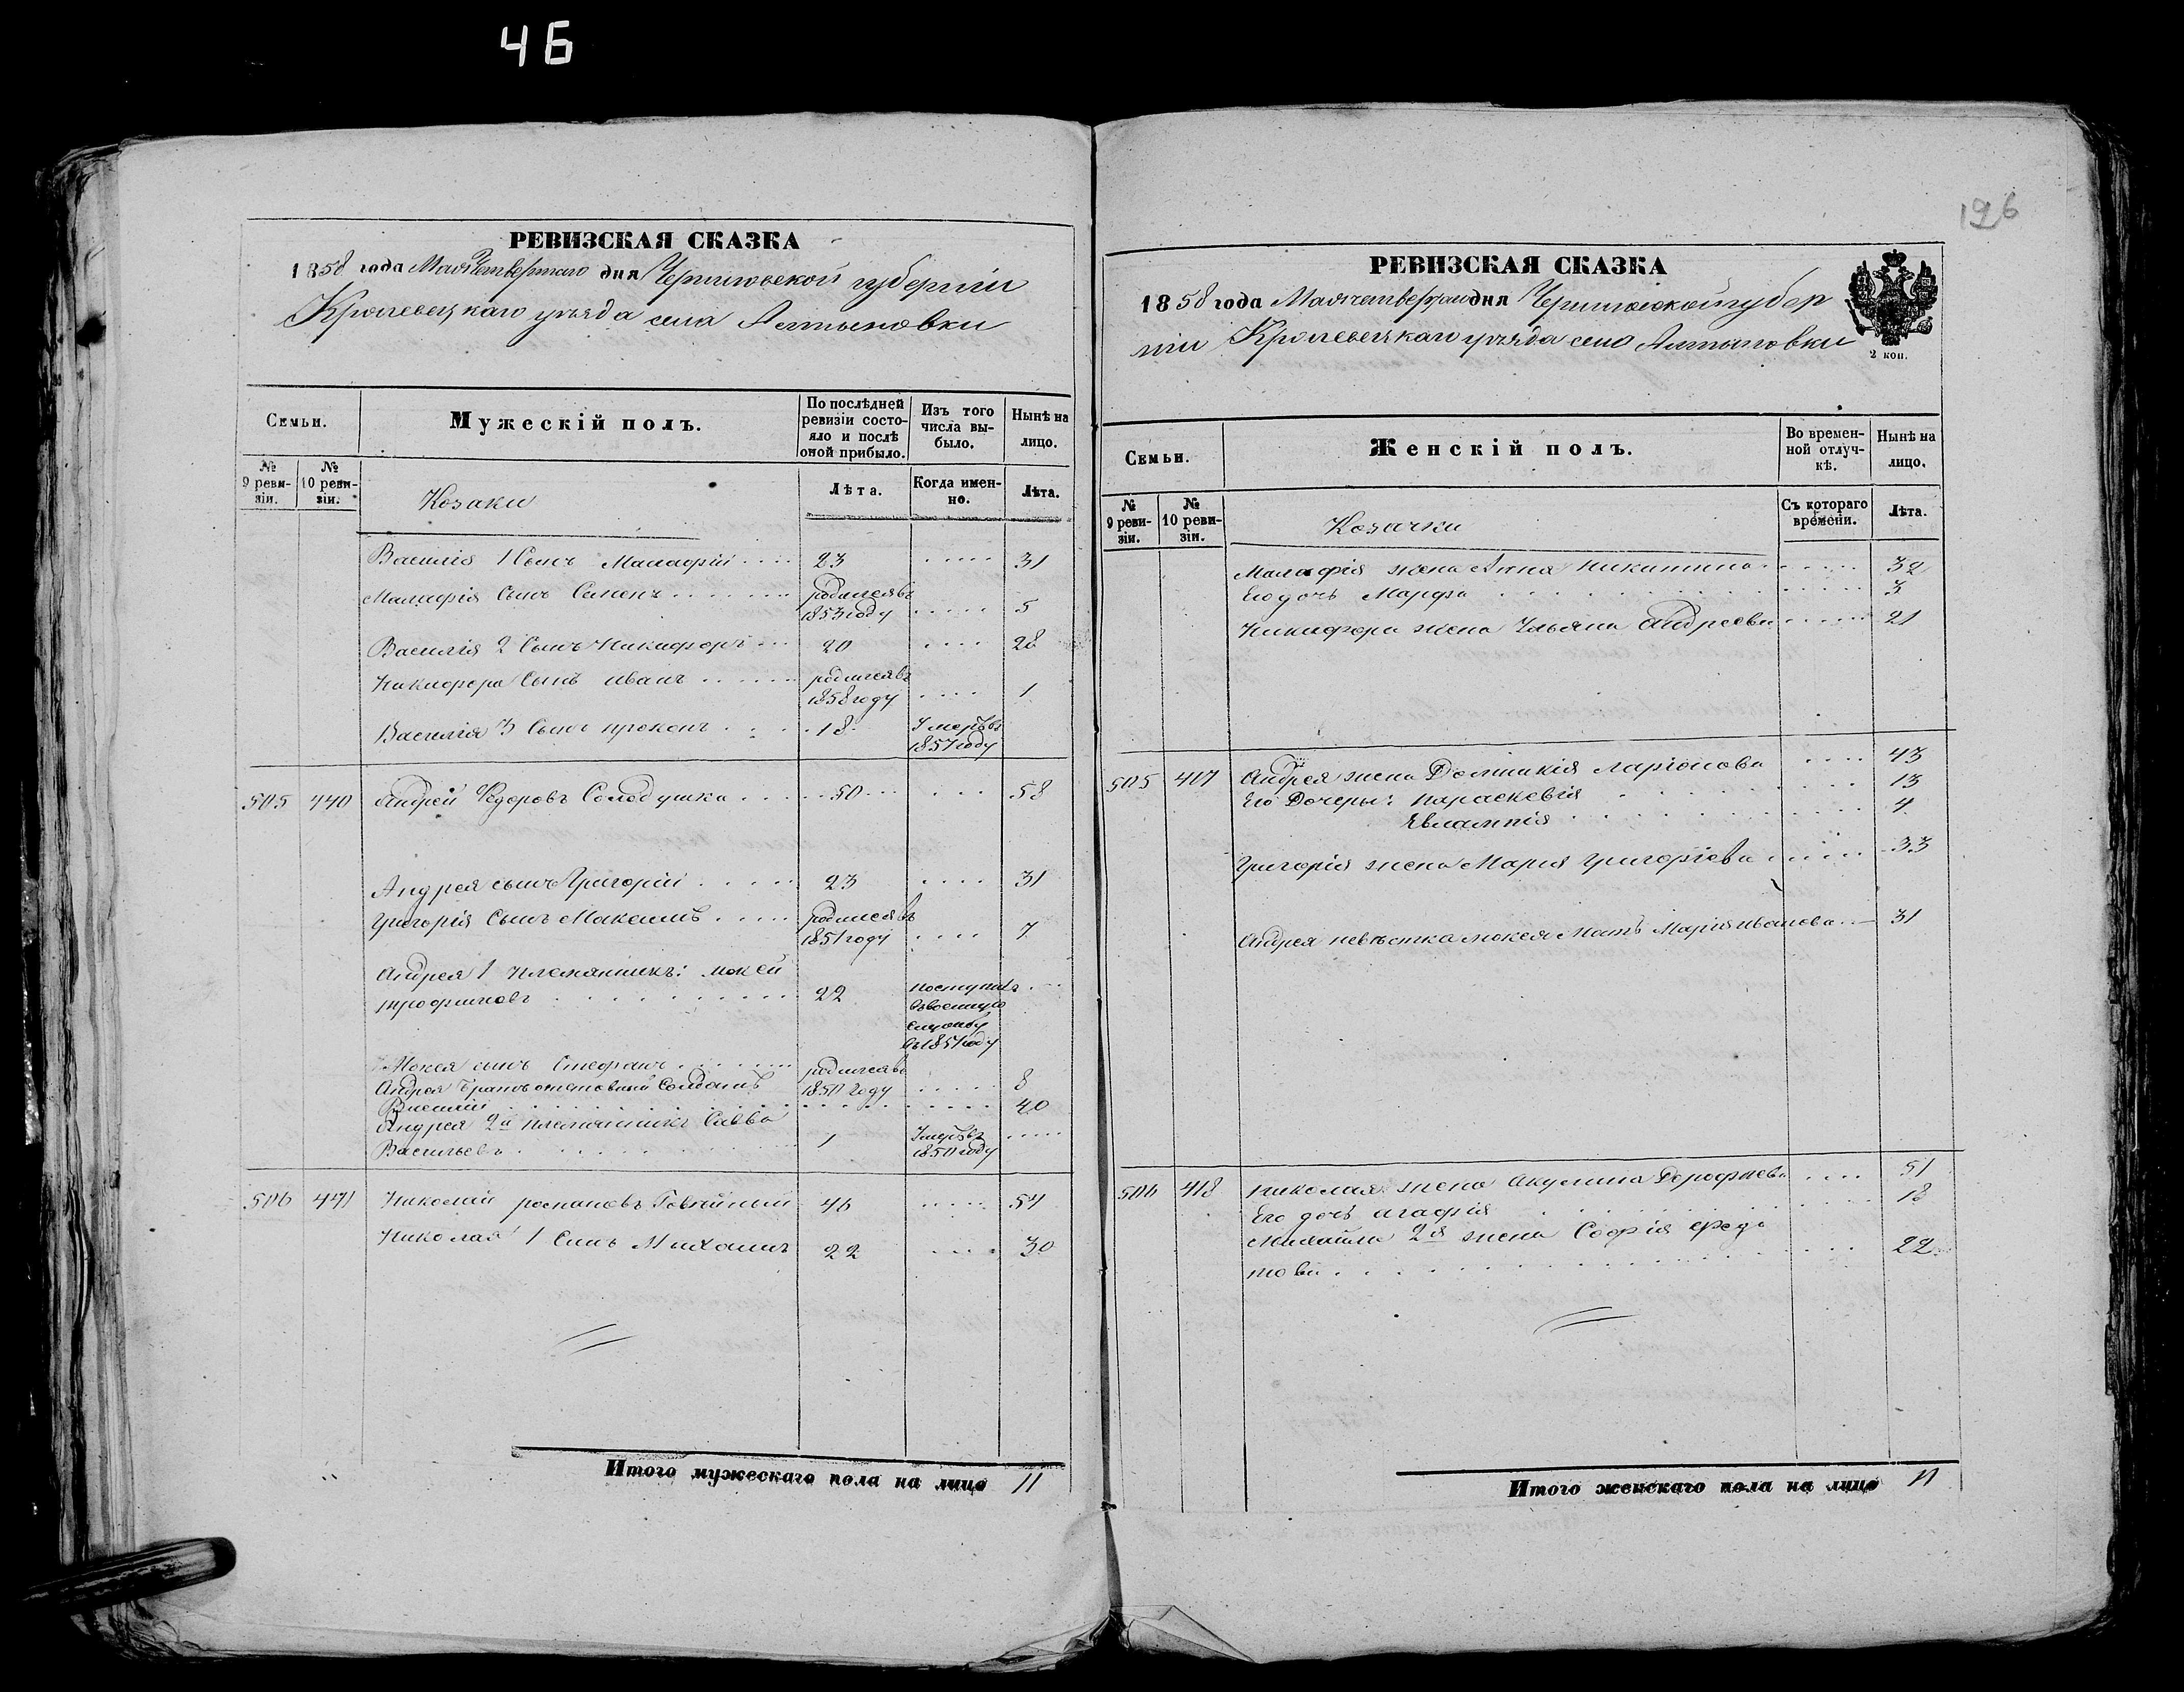 46
РЕВИЗСКАЯ СКАЗКА
1858 года Мая Четвертаго дня Черниговской губернiи
Кролевецкаго уѣзда села Алтыновки
Семьи.
Мужескій полъ.
По послѣдней ревизіи состояло и послѣ оной прибыло.
Изъ того числа выбыло.
Нынѣ на лицо.
№ 9 ревизіи.
№ 10 ревизіи.
Козаки
Лѣта.
Когда именно.
Лѣта.
Василія 1 Сынъ Малафій 23 31
Малафія Сынъ Семенъ родился въ
1853 году 5
Василія 2 Сынъ Никифоръ 20 28
Никифора Сынъ иванъ родился въ
1858 году 1
Василія 3 Сынъ прокопъ 18 Умеръ въ
1857 году
505 440 Андрей Федоровъ Солодушка 50 58
Андрея сынъ Григорій 23 31
Григорія Сынъ Максимъ родился въ
1851 году 7
Андрея 1 племянникъ: мокей
трофимовъ 22 поступилъ
въ военную
службу
въ 1851 году
Мокея сынъ Стефанъ родился въ
Андрея братъ отставный Солдатъ 1850 году 8
Василій 40
Андрея 2й племянникъ Савва
Васильевъ 1 Умеръ въ
1850 году
506 441 Николай романовъ Говяйный 46 54
Николая 1 Сынъ Михаилъ 22 30
Итого мужескаго пола на лицо 11
196
РЕВИЗСКАЯ СКАЗКА
1858 года Мая четвертаго дня Черниговской губер
ніи Кролевецкаго уѣзда села Алтыновки
2 коп.
Семьи.
Женскій полъ.
Во временной отлучкѣ.
Нынѣ на лицо.
№ 9 ревизіи.
№ 10 ревизіи.
Козачки
Съ котораго времени.
Лѣта.
Малафія жена Анна Никитина 32
Его дочь Марфа 3
Никифора жена Ульяна Андреева 21
505 417 Андрея жена Домникія Ларіонова 43
Его Дочеры: параскевія 13
Евлампія 4
Григорія жена Марія Григоріева 33
Андрея невѣстка мокея Мать Марія иванова 31
506 418 Николая жена Акулина Дорофеева 51
Его дочь агафія 18
Михаила 2я жена Софія
това 22
Итого женскаго пола на лицо 11